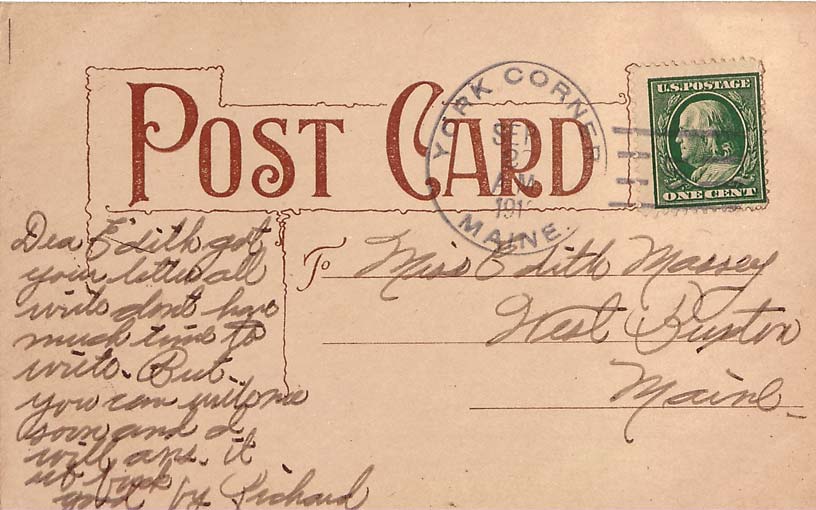 POST CARD
YORK CORNER
SEP
AM
191
MAINE
U.S. POSTAGE
ONE CENT
Dea Edith got
your letter all
write dont have
much time to
write. But
you can write me
soon and I
will ans. it
good by Richard
To Miss Edith Massey
West Buxton
Maine